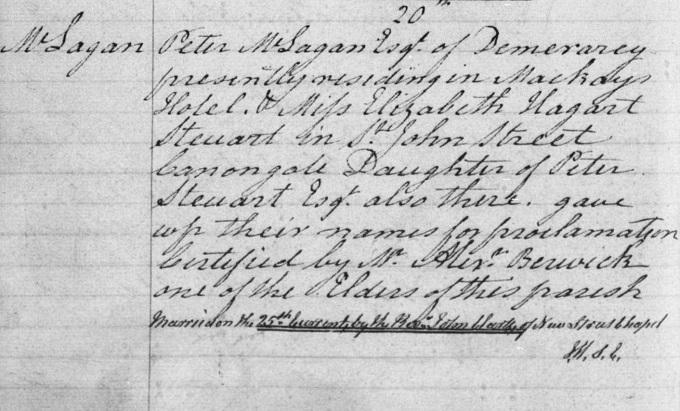 20th
McLagan Peter McLagan Esqr. of Demerarey
presently residing in Mackays
Hotel. & Miss Elizabeth Hagart
Steuart in St. John Street
Canongate Daughter of Peter
Steuart Esqr. also there. gave
up their names for proclamation
Certified by Mr. Alexr. Berwick
one of the Elders of this parish
Married on the 25th Current, by the Revd. John of New Street Chapel